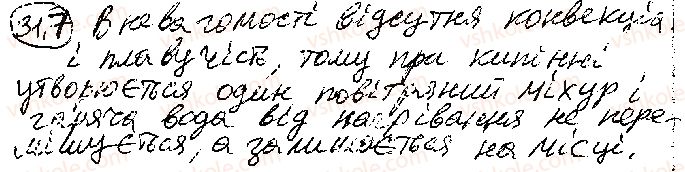 31.7 В невагомості відсутня конвекція
і плавучість, тому при кипінні
утворюється один повітряний міхур і
гаряча вода від нагрівання не пере-
мішується, а залишається на місці.